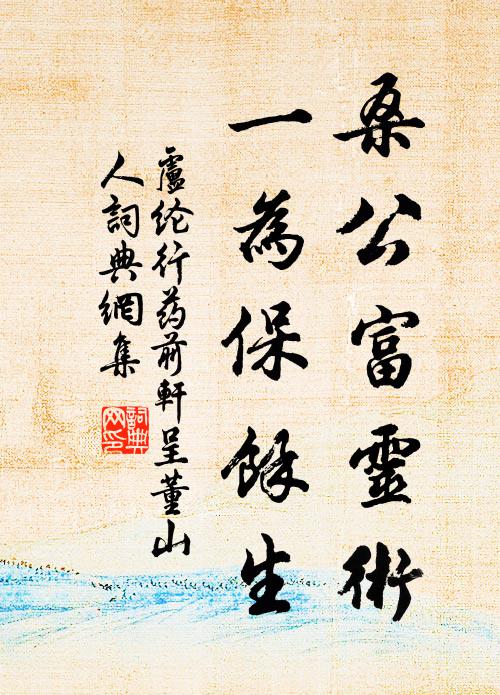 桑公富靈術
一為保餘生
盧纶行药前軒呈董山
人詞典網集
詞典
网印